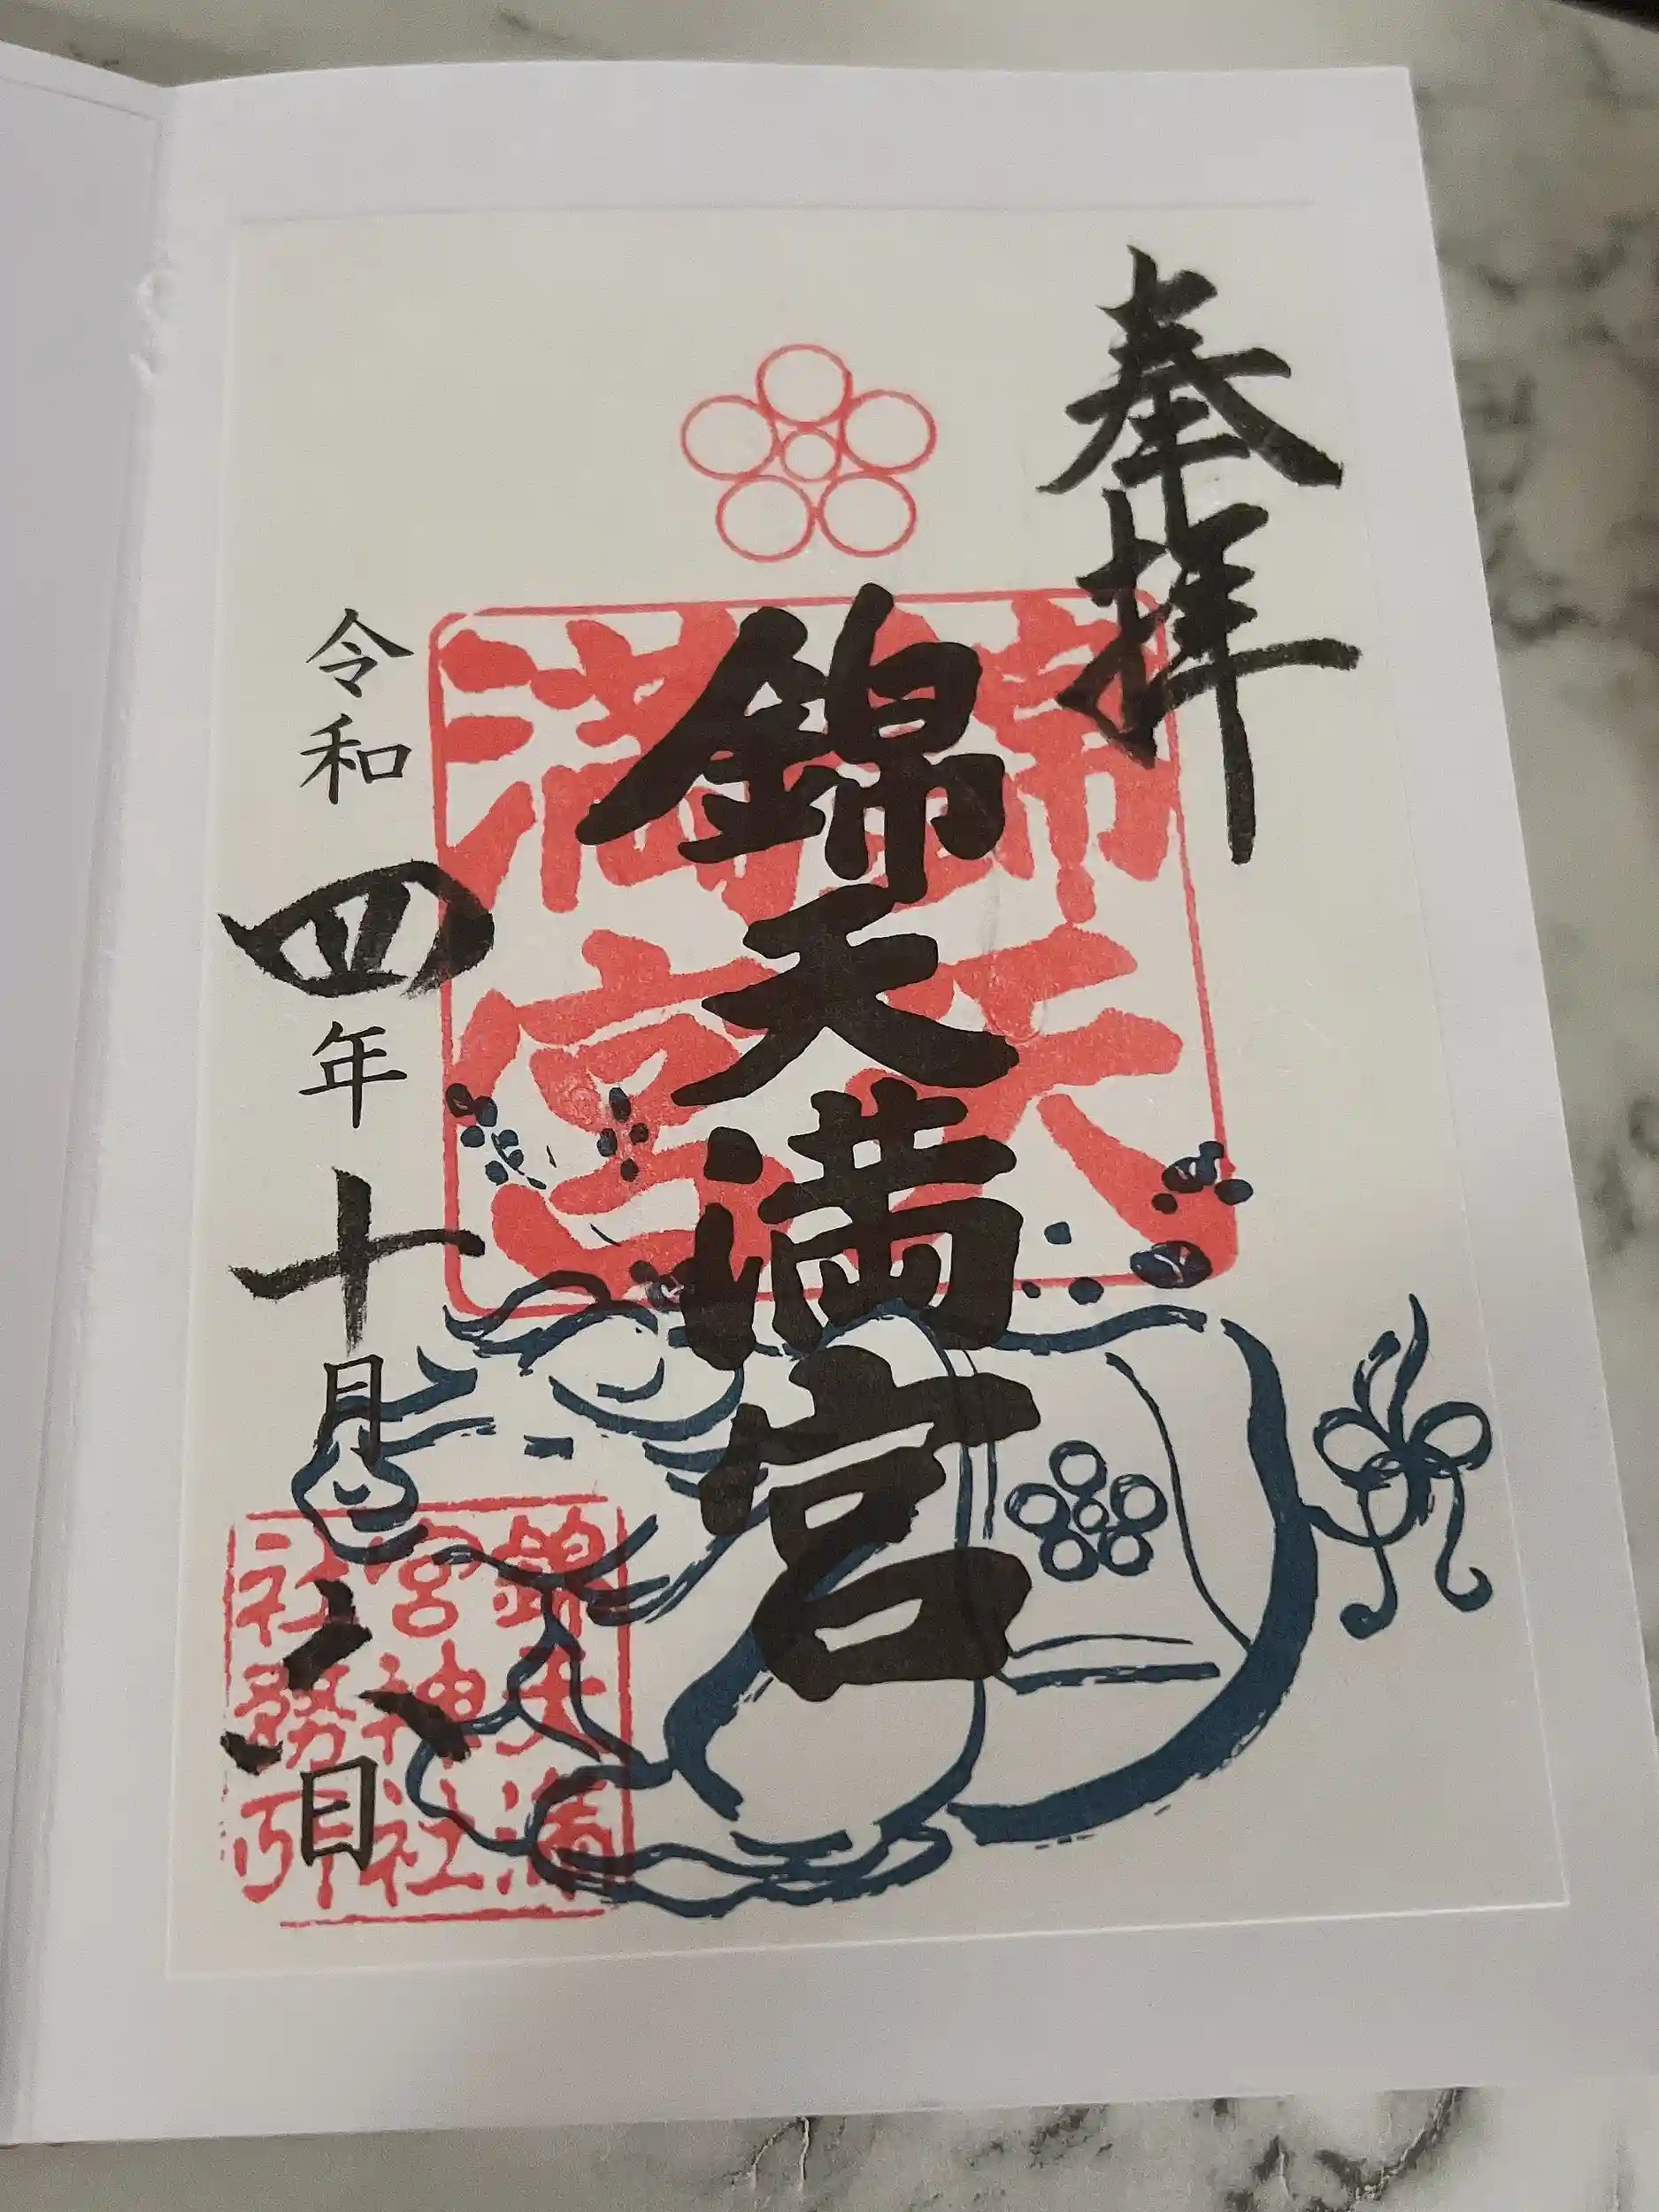 奉拝
錦天満宮
錦天
満宮
令和四年十月六日
錦天満
宮神社
社務所